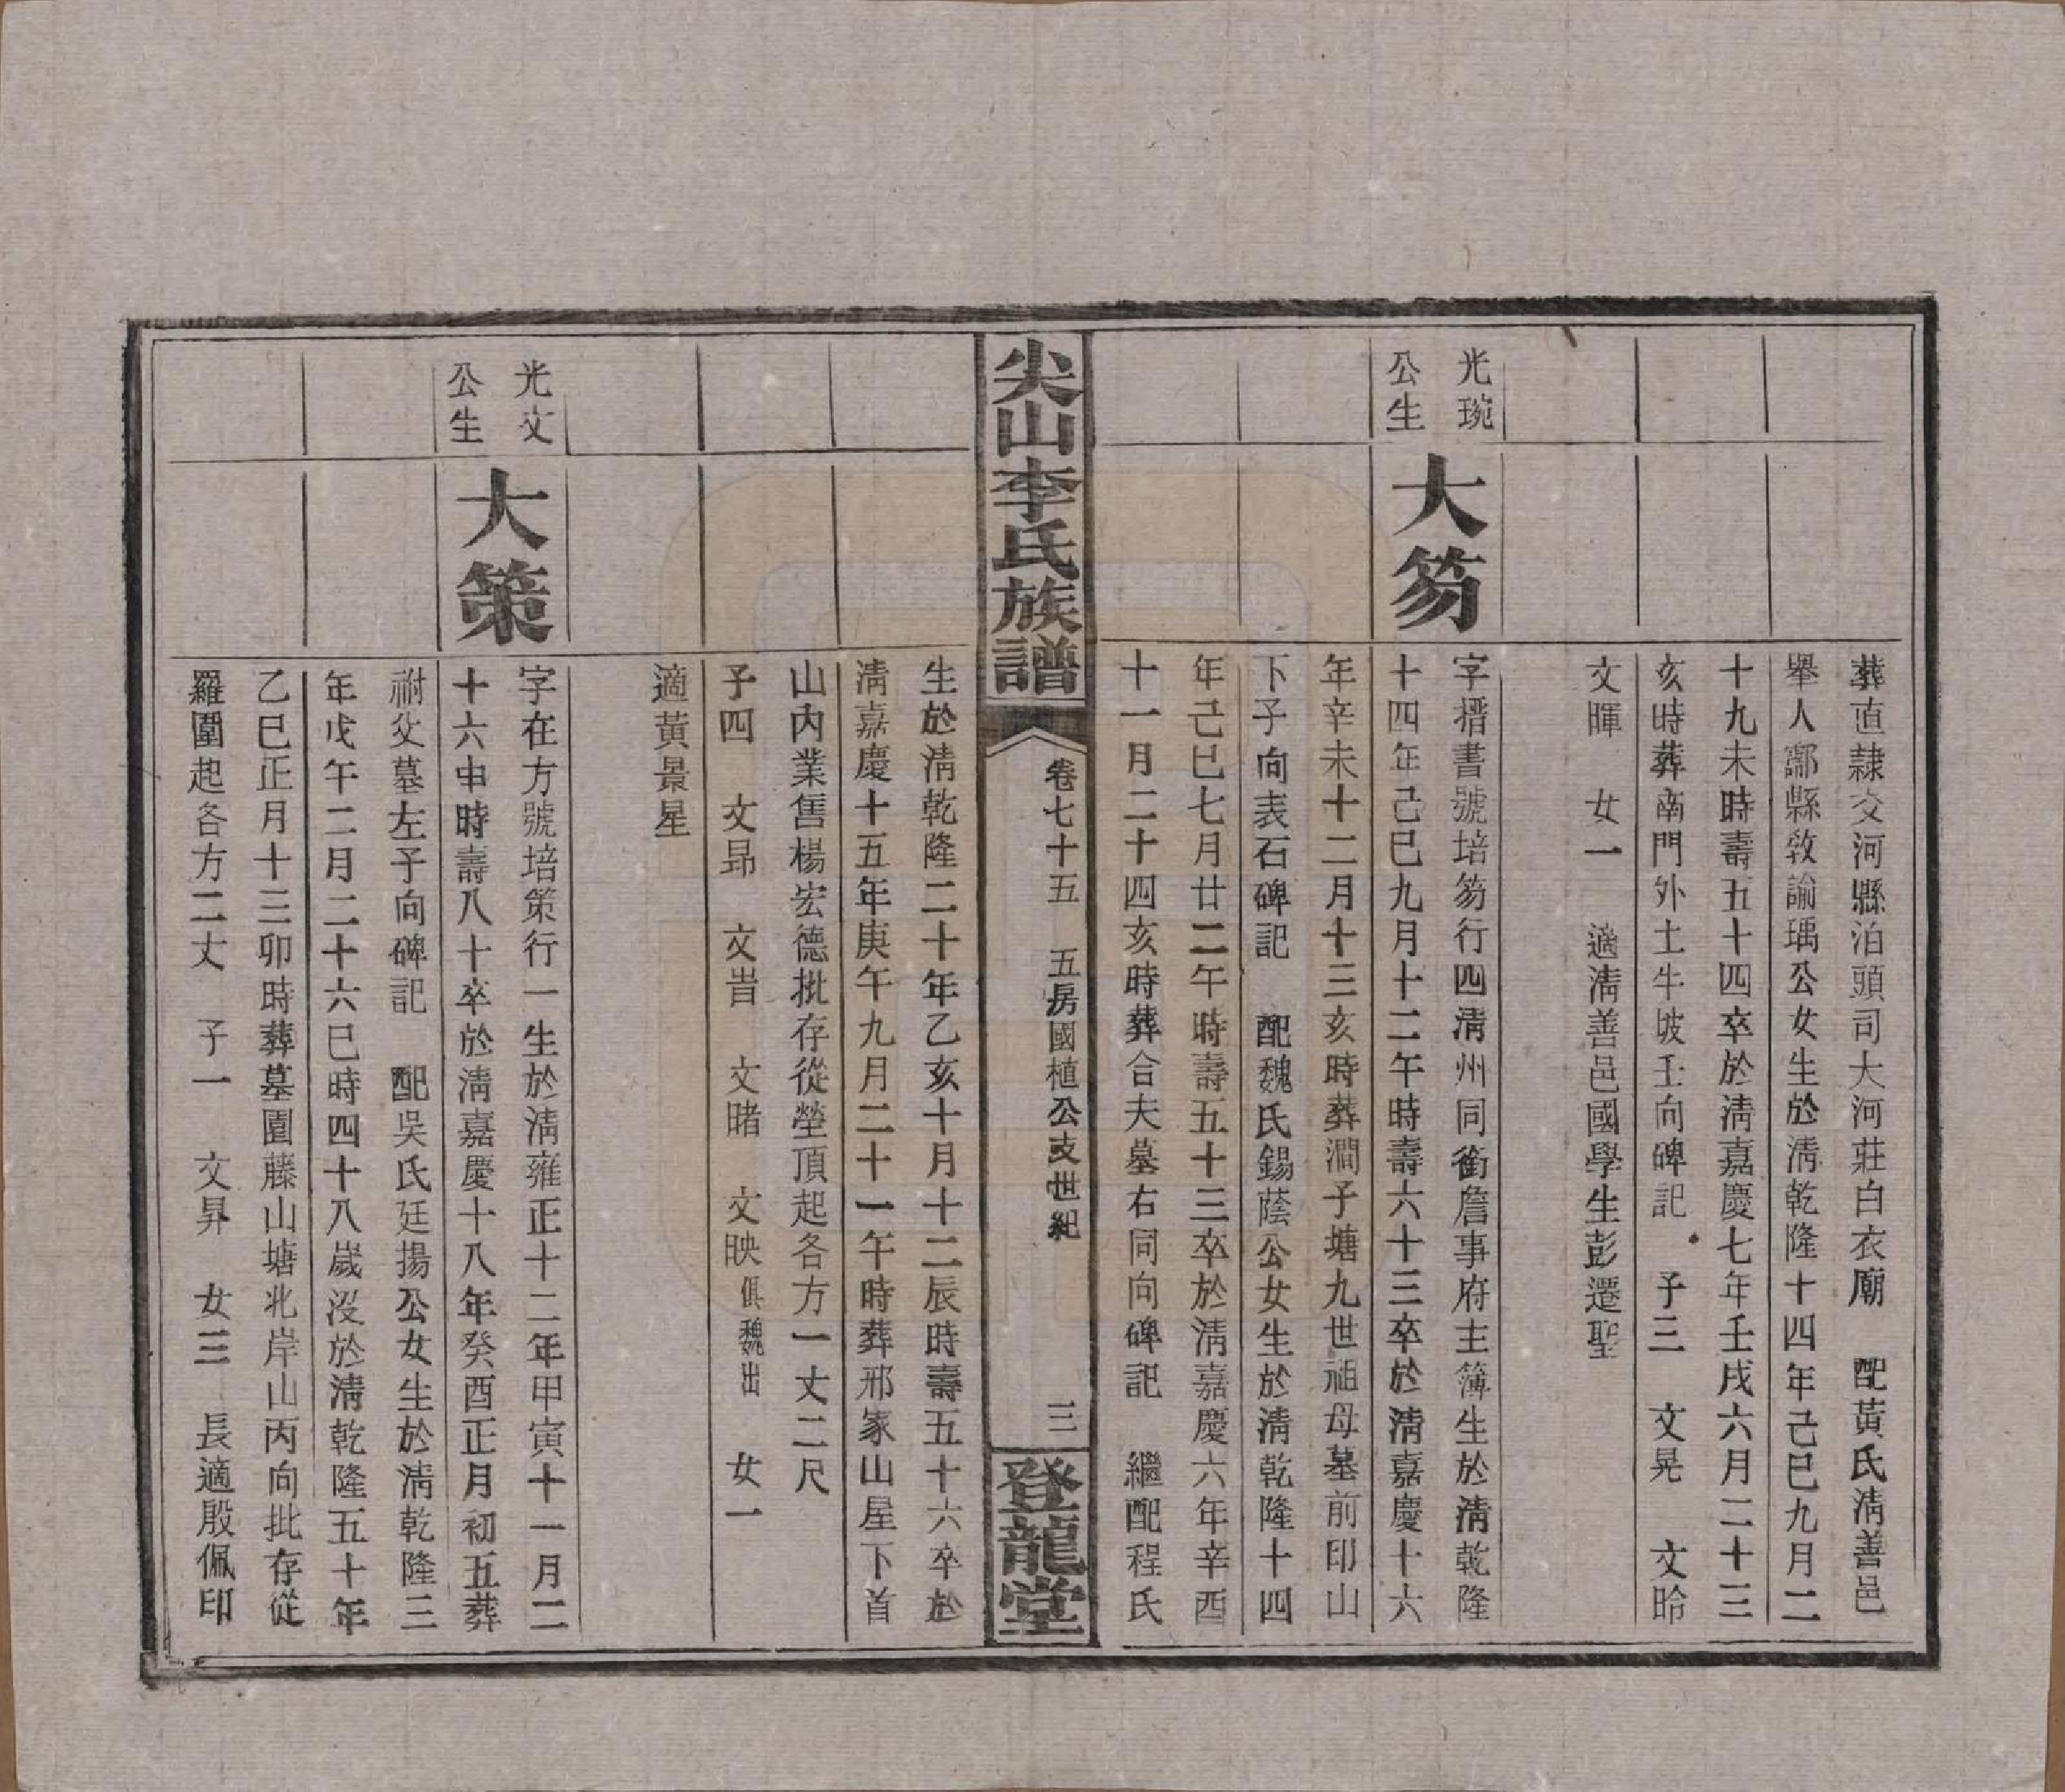 葬直隸交河縣泊頭司大河莊白衣廟　配黃氏淸善邑
舉人鄢縣敎諭瑀公女生於淸乾隆十四年己巳九月二
十九未時壽五十四卒於淸嘉慶七年壬戌六月二十三
亥時葬南門外土牛坡壬向碑記　子三　文晃　文昤
文暉　女一　適淸善邑國學生彭遷聖
光琬
公生
大笏
字搢書號培笏行四淸州同銜詹事府主簿生於淸乾隆
十四年己巳九月十二午時壽六十三卒於淸嘉慶十六
年辛未十二月十三亥時葬澗子塘九世祖母墓前印山
下子向表石碑記　配魏氏錫蔭公女生於淸乾隆十四
年己巳七月廿二午時壽五十三卒於淸嘉慶六年辛酉
十一月二十四亥時葬合夫墓右同向碑記　繼配程氏
尖山李氏族譜
卷七十五　五房國植公支世紀
三
登龍堂
生於淸乾隆二十年乙亥十月十二辰時壽五十六卒於
淸嘉慶十五年庚午九月二十一午時葬邢家山星下首
山內業售楊宏德批存從塋頂起各方一丈二尺
子四　文昴　文旹　文暏　文映俱魏出　女一
適黃景星
光文
公生
大策
字在方號培策行一生於淸雍正十二年甲寅十一月二
十六申時壽八十卒於淸嘉慶十八年癸酉正月初五葬
祔父墓左子向碑記　配吳氏廷揚公女生於淸乾隆三
年戊午二月二十六巳時四十八歲沒於淸乾隆五十年
乙巳正月十三卯時葬墓園藤山塘北岸山丙向批存從
羅圍起各方二丈　子一　文昇　女三　長適殷佩印